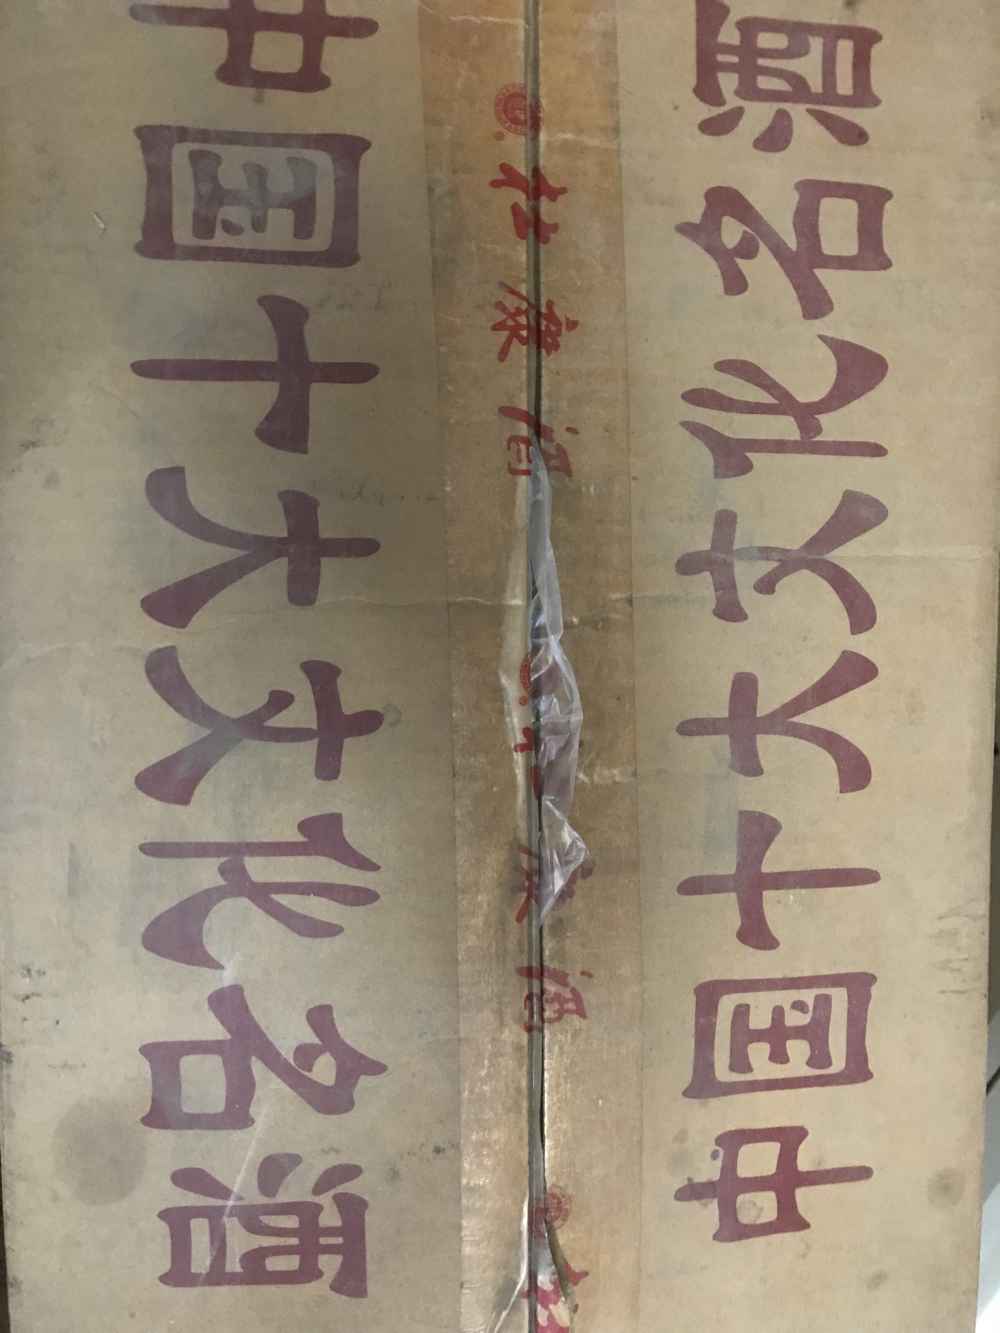 中国十大文化名酒
杜康酒
杜康酒
中国十大文化名酒